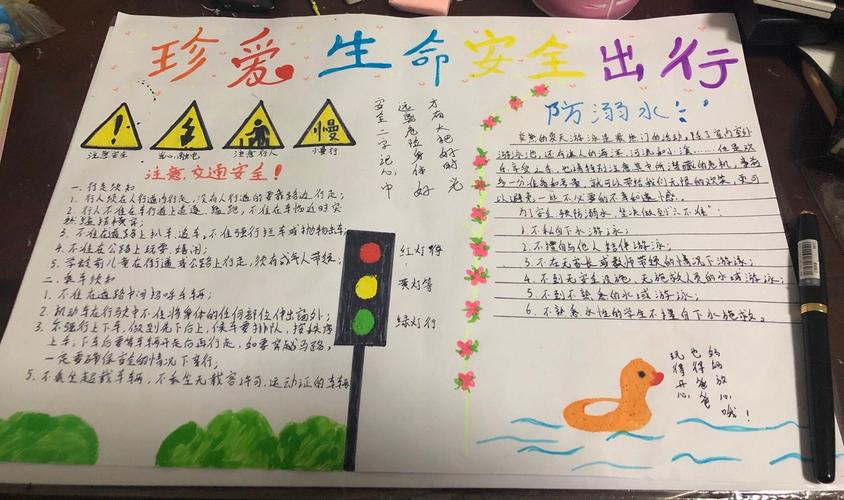 珍爱生命安全出行
注意安全
当心触电
注意行人
慢
慢行
注意交通安全!
一、行走须知
1. 行人须在人行道内行走,没有人行道的要靠路边行走;
2. 行人不准在车行道上追逐、猛跑,不准在车临近时突
然猛跑横穿;
3. 不准在道路上扒车、追车,不准强行拦车或抛物击车;
4. 不准在公路上玩耍、嬉闹;
5. 学龄前儿童在街道或公路上行走,须有成年人带领;
二、乘车须知
1. 不准在道路中间招呼车辆;
2. 机动车在行驶中不准将身体的任何部位伸出窗外;
3. 不强行上下车,做到先下后上,候车要排队,按秩序
上车;下车后要等车辆开走后再行走,如要穿越马路,
一定要确保安全的情况下穿行;
5. 不乘坐超载车辆,不乘坐无载客许可、运动证的车辆
安全二字记心中
远离危险身体好
方有大把好时光
红灯停
黄灯等
绿灯行
防溺水
炎热的夏天游泳是最热门的运动,除了室内室外
游泳池,还有迷人的海洋、河流和小溪……但是欢
为了安全预防溺水,坚决做到“六不准”:
1. 不私自下水游泳;
2. 不擅自与他人结伴游泳;
3. 不在无家长或教师带领的情况下游泳;
4. 不到无安全设施、无施救人员的水域游泳;
5. 不到不熟悉的水域游泳;
6. 不熟悉水性的学生不擅自下水施救。
玩得开心
也得爸爸
妈妈放心哦!